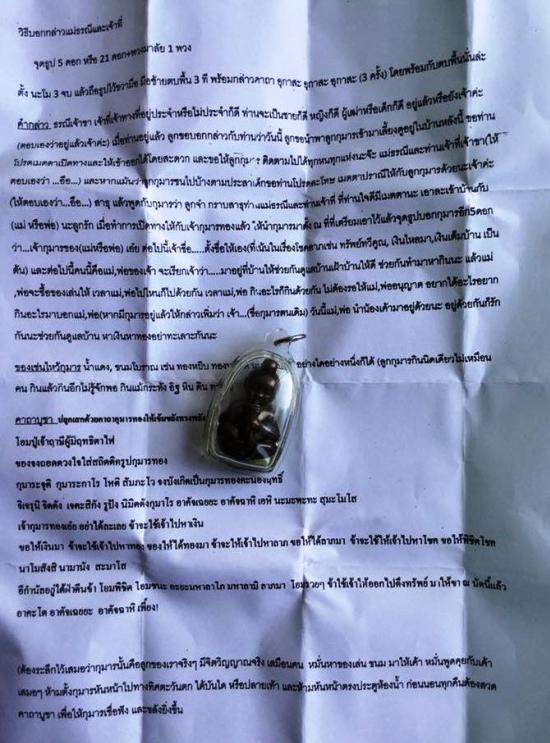 วิธีบอกกล่าวแม่ธรณีและเจ้าที่
จุดธูป 5 ดอก หรือ 21 ดอก+พวงมาลัย 1 พวง
ตั้ง นะโม 3 จบ แล้วถือธูปไว้ขวามือ มือซ้ายตบพื้น 3 ที พร้อมกล่าวคาถา อุกาสะ อุกาสะ อุกาสะ (3 ครั้ง) โดยพร้อมกับตบพื้นนั่นล่ะ
คำกล่าว ธรณีเจ้าขา เจ้าที่เจ้าทางที่อยู่ประจำหรือไม่ประจำก็ดี ท่านจะเป็นชายก็ดี หญิงก็ดี ผู้เฒ่าหรือเด็กก็ดี อยู่แล้วหรือยังเจ้าค่ะ
(ตอบเองว่าอยู่แล้วเจ้าค่ะ) เมื่อท่านอยู่แล้ว ลูกขอบอกกล่าวกับท่านว่าวันนี้ ลูกขอนำพาลูกกุมารเข้ามาเลี้ยงดูอยู่ในบ้านหลังนี้ ขอท่าน
โปรดเมตตาเปิดทางและให้เข้าออกได้โดยสะดวก และขอให้ลูกกุมาร ติดตามไปได้ทุกหนทุกแห่งนะจ๊ะ แม่ธรณีและท่านเจ้าที่เจ้าขา(ให้
ตอบเองว่า ...อือ...) และหากแม้นว่าลูกกุมารซนไปบ้างตามประสาเด็กขอท่านโปรดละโทษ เมตตาปราณีให้กับลูกกุมารด้วยนะเจ้าค่ะ
(ให้ตอบเองว่า ...อือ...) สาธุ แล้วพูดกับกุมารว่า ลูกจ๋า กราบสาธุท่านแม่ธรณีและท่านเจ้าที่ ที่ท่านใจดีมีเมตตานะ เอาละเข้าบ้านกับ
(แม่ หรือพ่อ) นะลูกรัก เมื่อทำการเปิดทางให้กับเจ้ากุมารทองแล้ว ให้นำกุมารมาตั้ง ณ ที่ที่เตรียมเอาไว้แล้วจุดธูปบอกกุมารอีก5ดอก
ว่า...เจ้ากุมารของ(แม่หรือพ่อ) เอ๋ย ต่อไปนี้เจ้าชื่อ.....ตั้งชื่อให้เอง(ที่เน้นในเรื่องโชคลาภเช่น ทรัพย์ทวีคูณ, เงินไหลมา,เงินเต็มบ้าน เป็น
ต้น) และต่อไปนี้คนนี้คือแม่,พ่อของเจ้า จะเรียกเจ้าว่า.....มาอยู่ที่บ้านให้ช่วยกันดูแลบ้านเฝ้าบ้านให้ดี ช่วยกันทำมาหากินนะ แล้วแม่
,พ่อจะซื้อของเล่นให้ เวลาแม่,พ่อไปไหนก็ไปด้วยกัน เวลาแม่,พ่อ กินอะไรก็กินด้วยกัน ไม่ต้องรอให้แม่,พ่ออนุญาต อยากได้อะไรอยาก
กินอะไรมาบอกแม่,พ่อ(หากมีกุมารอยู่แล้วให้กล่าวเพิ่มว่า เจ้า...(ชื่อกุมารตนเดิม) วันนี้แม่,พ่อ นำน้องเค้ามาอยู่ด้วยนะ อยู่ด้วยกันก็รัก
กันนะช่วยกันดูแลบ้าน หาเงินหาทองอย่าทะเลาะกันนะ
ของเซ่นไหว้กุมาร น้ำแดง, ขนมโบราณ เช่น ทองหยิบ ทอง อย่างใดอย่างหนึ่งก็ได้ (ลูกกุมารกินนิดเดียวไม่เหมือน
คน กินแล้วกินอีกไม่รู้จักพอ กินแม้กระทั่ง อิฐ หิน ดิน
คาถาบูชา ปลุกเสกด้วยคาถากุมารทองให้เข้มขลังทรงพลัง
โอมปู่เจ้าฤาษีผู้มีฤทธิตาไฟ
ของจงถอดดวงใจใส่สถิตติดรูปกุมารทอง
กุมาระจุติ กุมาระกาไร โหติ สัมภะโว จงบังเกิดเป็นกุมารทองคะนองฤทธิ์
จิเจรุนิ จิตตัง เจตะสิกัง รูปัง นิมิตตังกุมาโร อาคัจเฉยยะ อาคัจฉาหิ เอหิ นะมะพะทะ สุมะโมโส
เจ้ากุมารทองเอ๋ย อย่าได้ละเลย ข้าจะใช้เจ้าไปหาเงิน
ขอให้เงินมา ข้าจะใช้เจ้าไปหาทอง ของให้ได้ทองมา ข้าจะให้เจ้าไปหาลาภ ขอให้ได้ลาภมา ข้าจะใช้ให้เจ้าไปหาโชค ขอให้พิชิตโชค
นาโมสังสิ นามานัง สะมาโส
อีกำนัลอยู่ใต้ฝ่าตีนข้า โอมพิชิต โอมชนะ อะยะมหาลาโภ มหาลามิ ลาภมา โอมรวยๆ ข้าใช้เจ้าให้ออกไปดึงทรัพย์ มาให้ข้า ณ บัดนี้แล้ว
อาคะโต อาคัจเฉยยะ อาคัจฉาหิ เพี้ยง!
(ต้องระลึกไว้เสมอว่ากุมารนั้นคือลูกของเราจริงๆ มีจิตวิญญาณจริง เสมือนคน หมั่นหาของเล่น ขนม มาให้เค้า หมั่นพูดคุยกับเค้า
เสมอๆ ห้ามตั้งกุมารหันหน้าไปทางทิศตะวันตก ใต้บันได หรือปลายเท้า และห้ามหันหน้าตรงประตูห้องน้ำ ก่อนนอนทุกคืนต้องสวด
คาถาบูชา เพื่อให้กุมารเชื่อฟัง และขลังยิ่งขึ้น